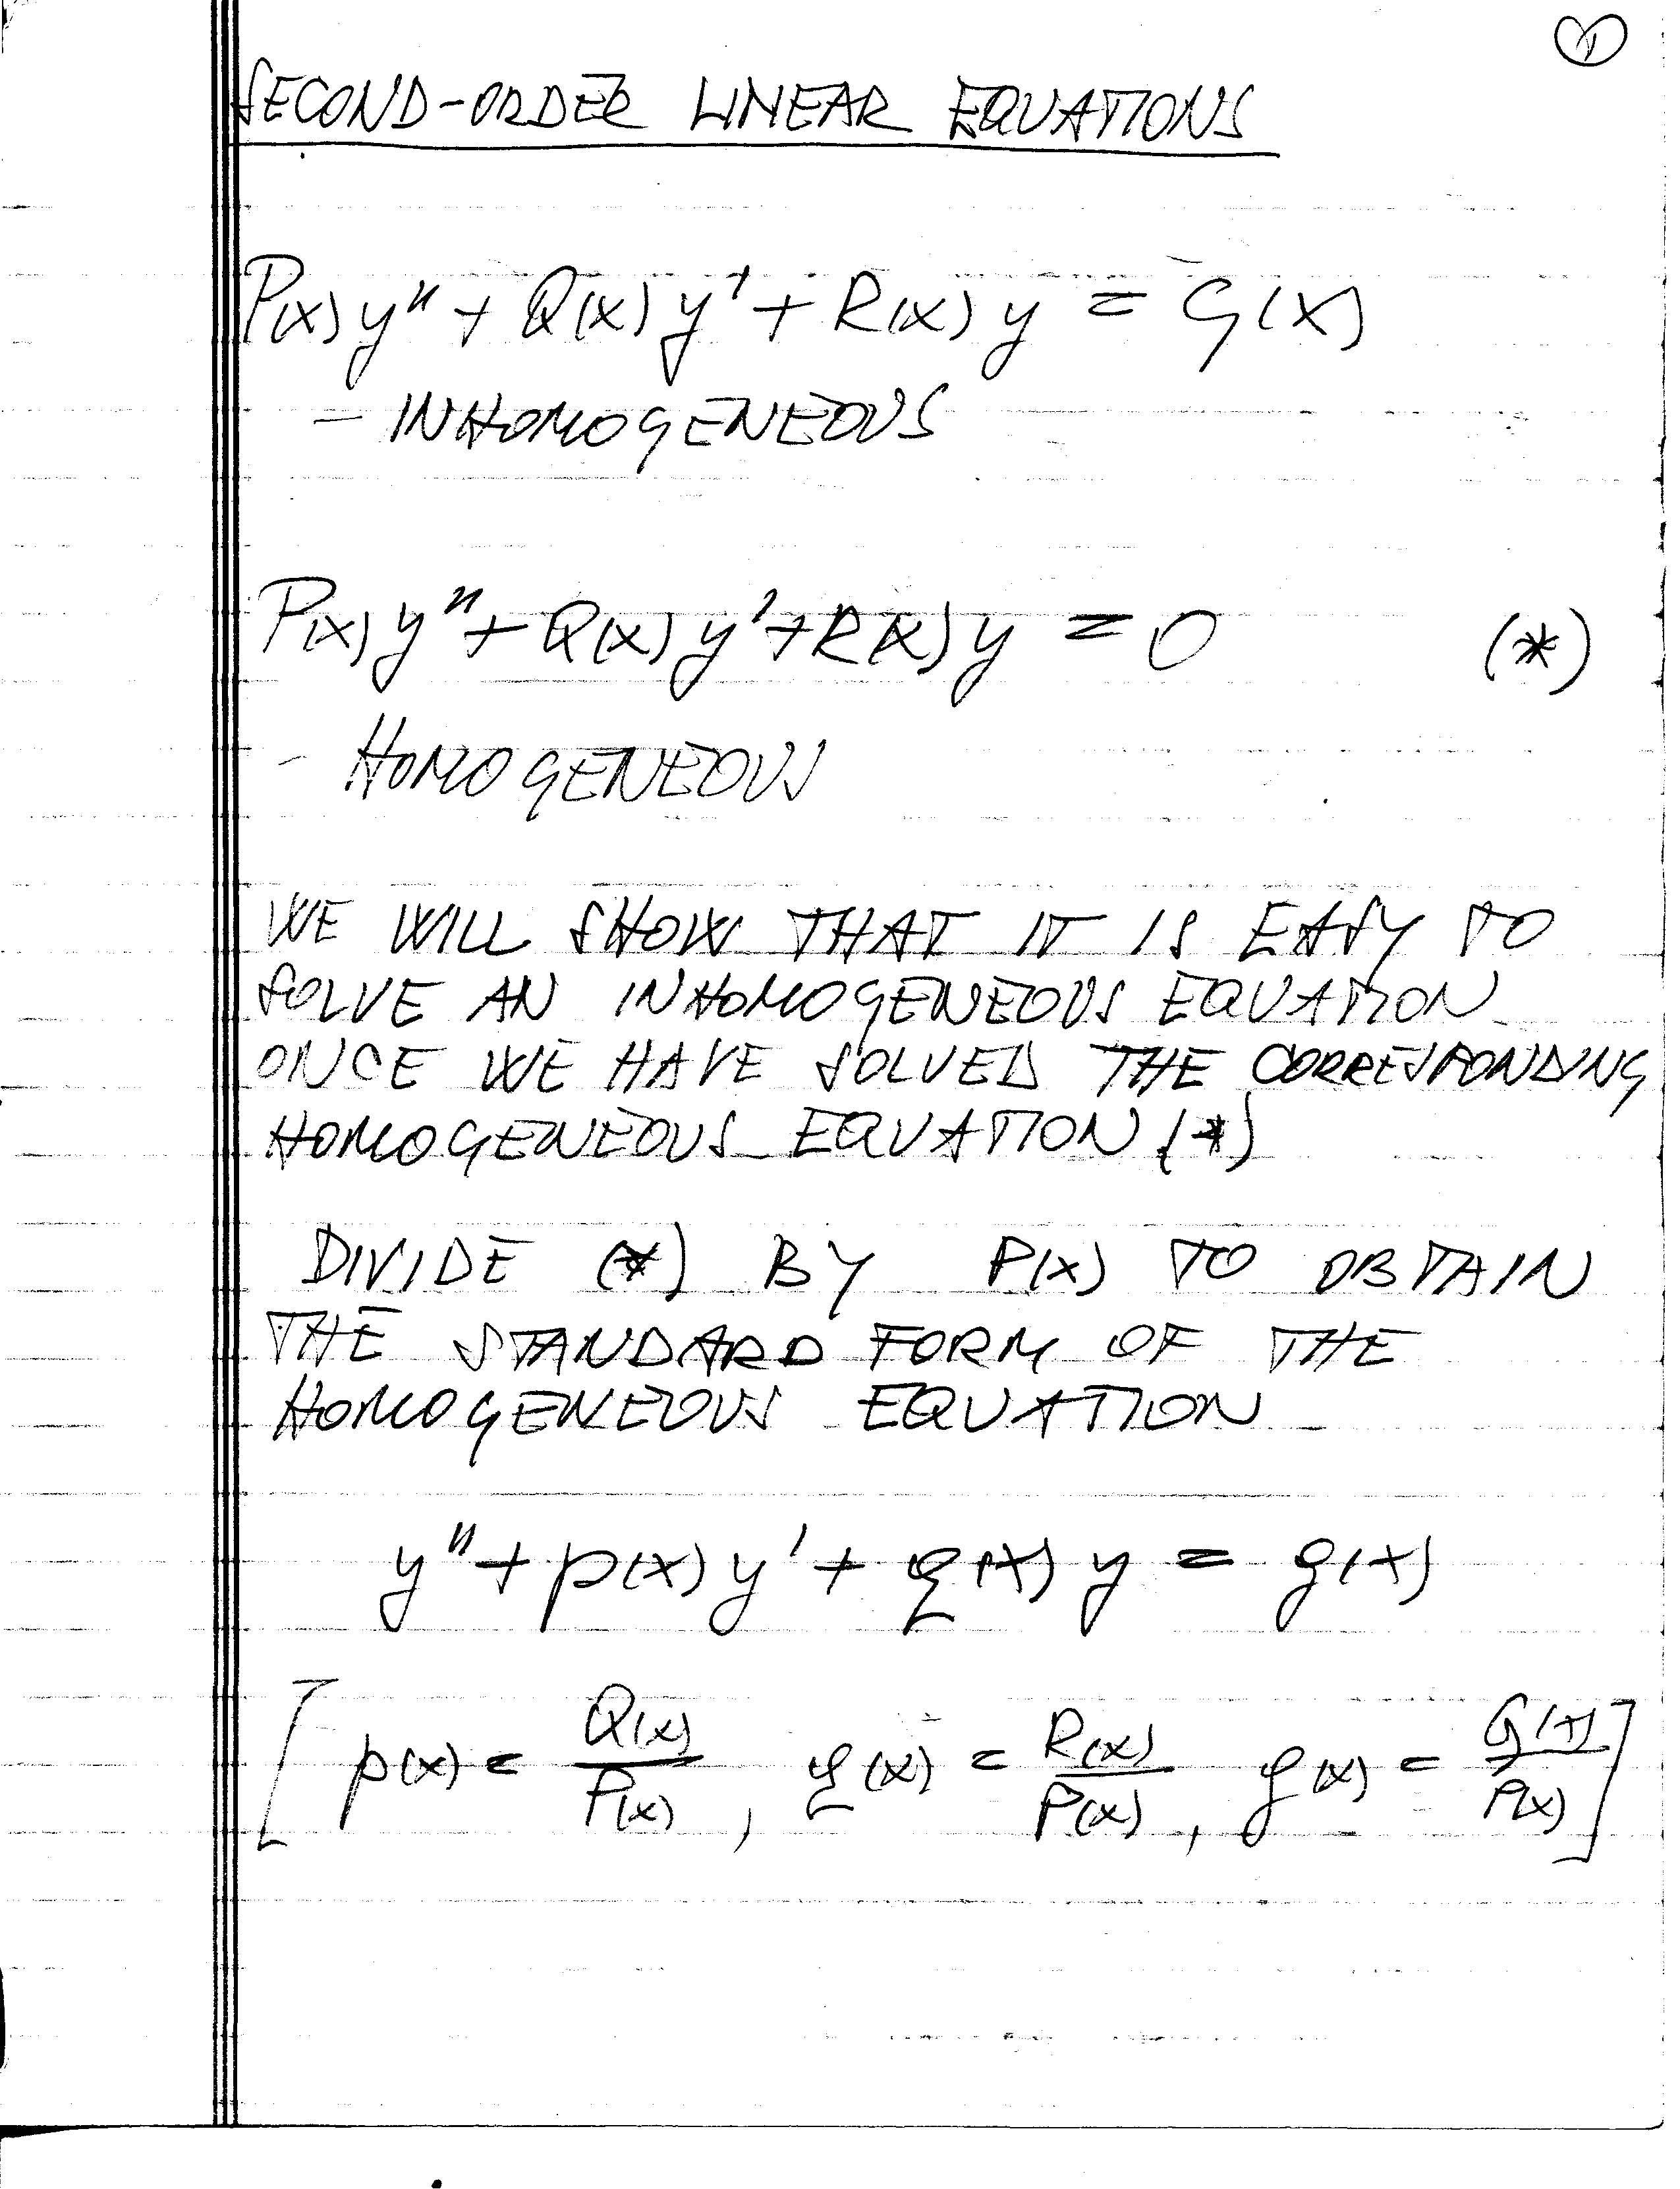 1
SECOND-ORDER LINEAR EQUATIONS
P(x) y" + Q(x) y' + R(x) y = G(x)
- INHOMOGENEOUS
P(x) y" + Q(x) y' + R(x) y = 0 (*)
- HOMOGENEOUS
WE WILL SHOW THAT IT IS EASY TO
SOLVE AN INHOMOGENEOUS EQUATION
ONCE WE HAVE SOLVED THE CORRESPONDING
HOMOGENEOUS EQUATION (*)
DIVIDE (*) BY P(x) TO OBTAIN
THE STANDARD FORM OF THE
HOMOGENEOUS EQUATION
y" + p(x) y' + q(x) y = g(x)
[ p(x) = Q(x)/P(x), q(x) = R(x)/P(x), g(x) = G(x)/P(x) ]